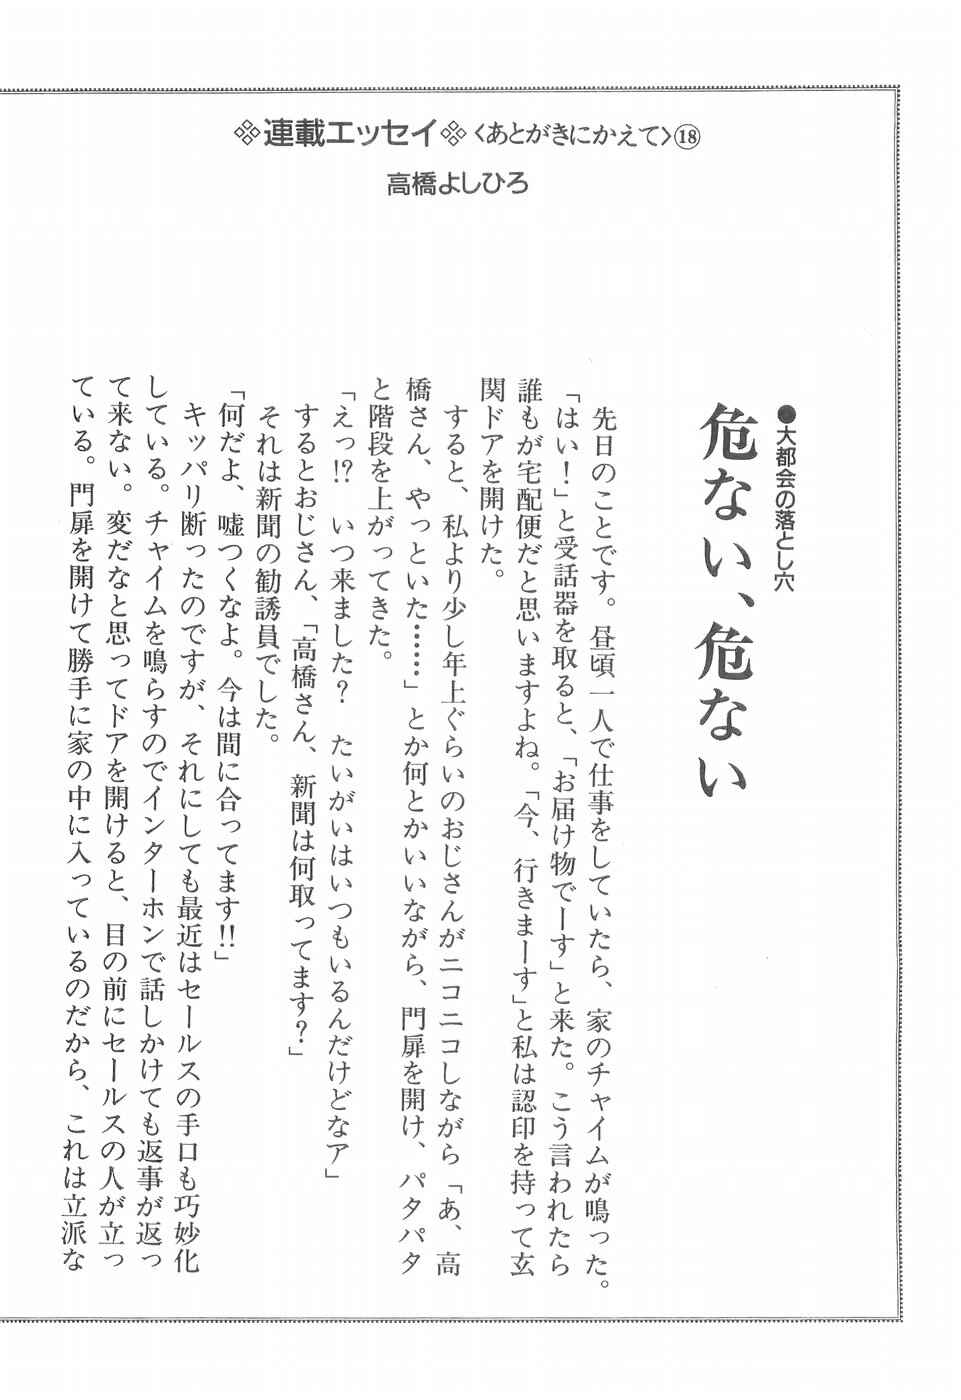 ※連載エッセイ※〈あとがきにかえて〉⑱
高橋よしひろ
●大都会の落とし穴
危ない、危ない
先日のことです。昼頃一人で仕事をしていたら、家のチャイムが鳴った。
「はい！」と受話器を取ると、「お届け物でーす」と来た。こう言われたら
誰もが宅配便だと思いますよね。「今、行きまーす」と私は認印を持って玄
関ドアを開けた。
すると、私より少し年上ぐらいのおじさんがニコニコしながら「あ、高
橋さん、やっといた……」とか何とかいいながら、門扉を開け、パタパタ
と階段を上がってきた。
「えっ!?　いつ来ました？　たいがいはいつもいるんだけどなア」
するとおじさん、「高橋さん、新聞は何取ってます？」
それは新聞の勧誘員でした。
「何だよ、嘘つくなよ。今は間に合ってます!!」
キッパリ断ったのですが、それにしても最近はセールスの手口も巧妙化
している。チャイムを鳴らすのでインターホンで話しかけても返事が返っ
て来ない。変だなと思ってドアを開けると、目の前にセールスの人が立っ
ている。門扉を開けて勝手に家の中に入っているのだから、これは立派な